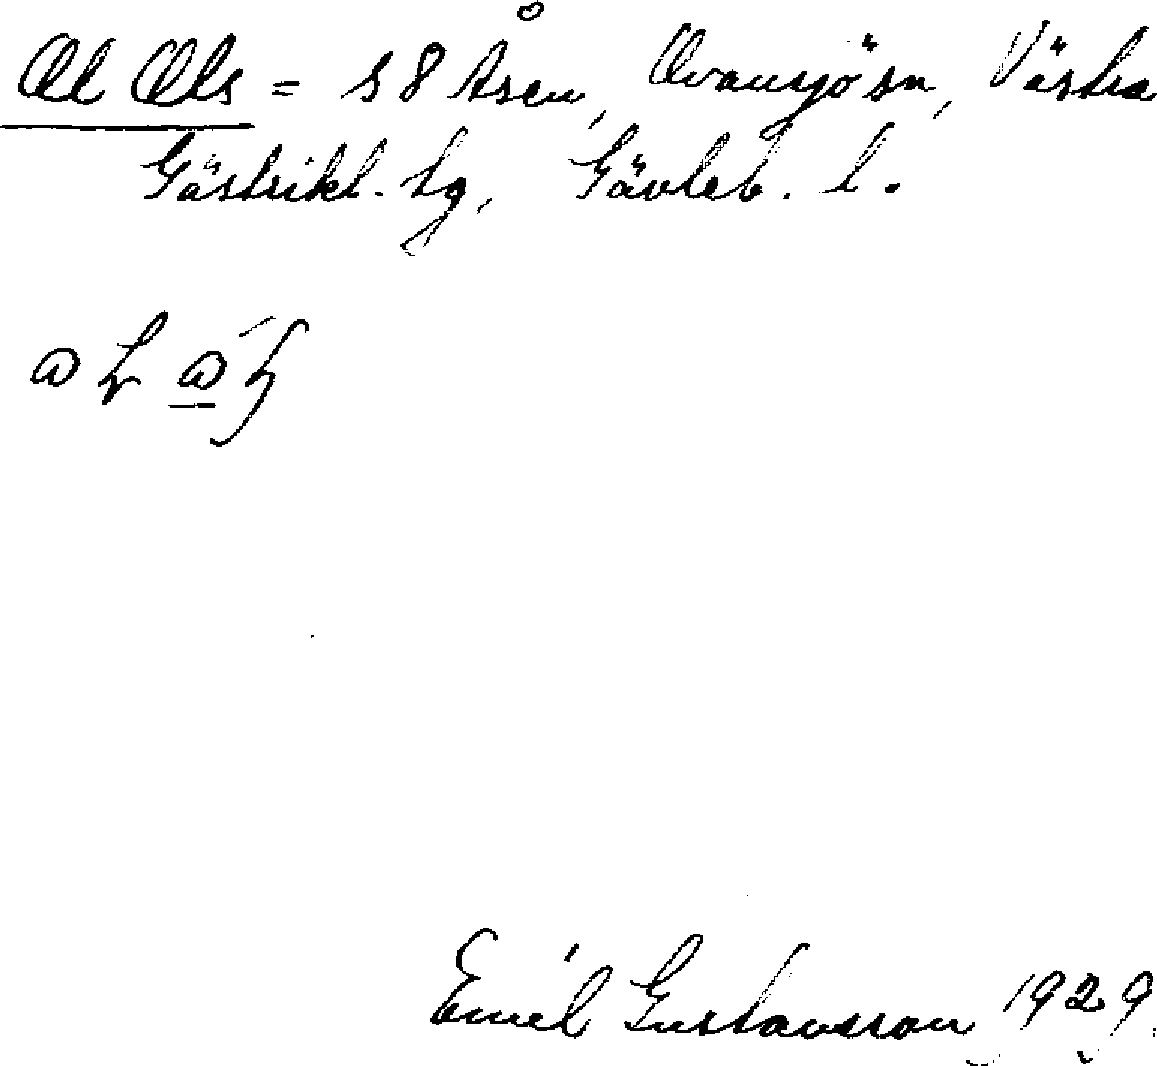 Ol Ols = s 8 Åsen, Ovansjö sn, Västra
Gästrikl. tg, Gävleb. l.
Emil Gustavsson 1929.